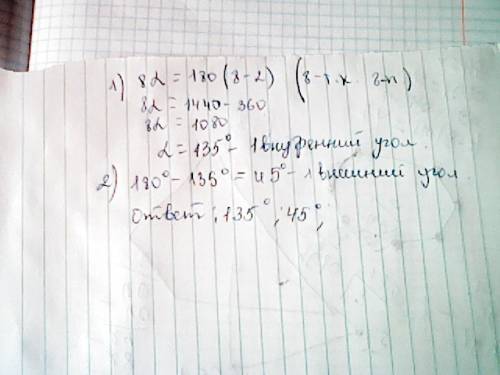 1) 8α = 180 (8-2) (8-т.к. 8-n)
8α = 1440-360
8α = 1080
α = 135° - 1 внутренний угол.
2) 180° - 135° = 45° - 1 внешний угол.
ответ: 135°; 45°;